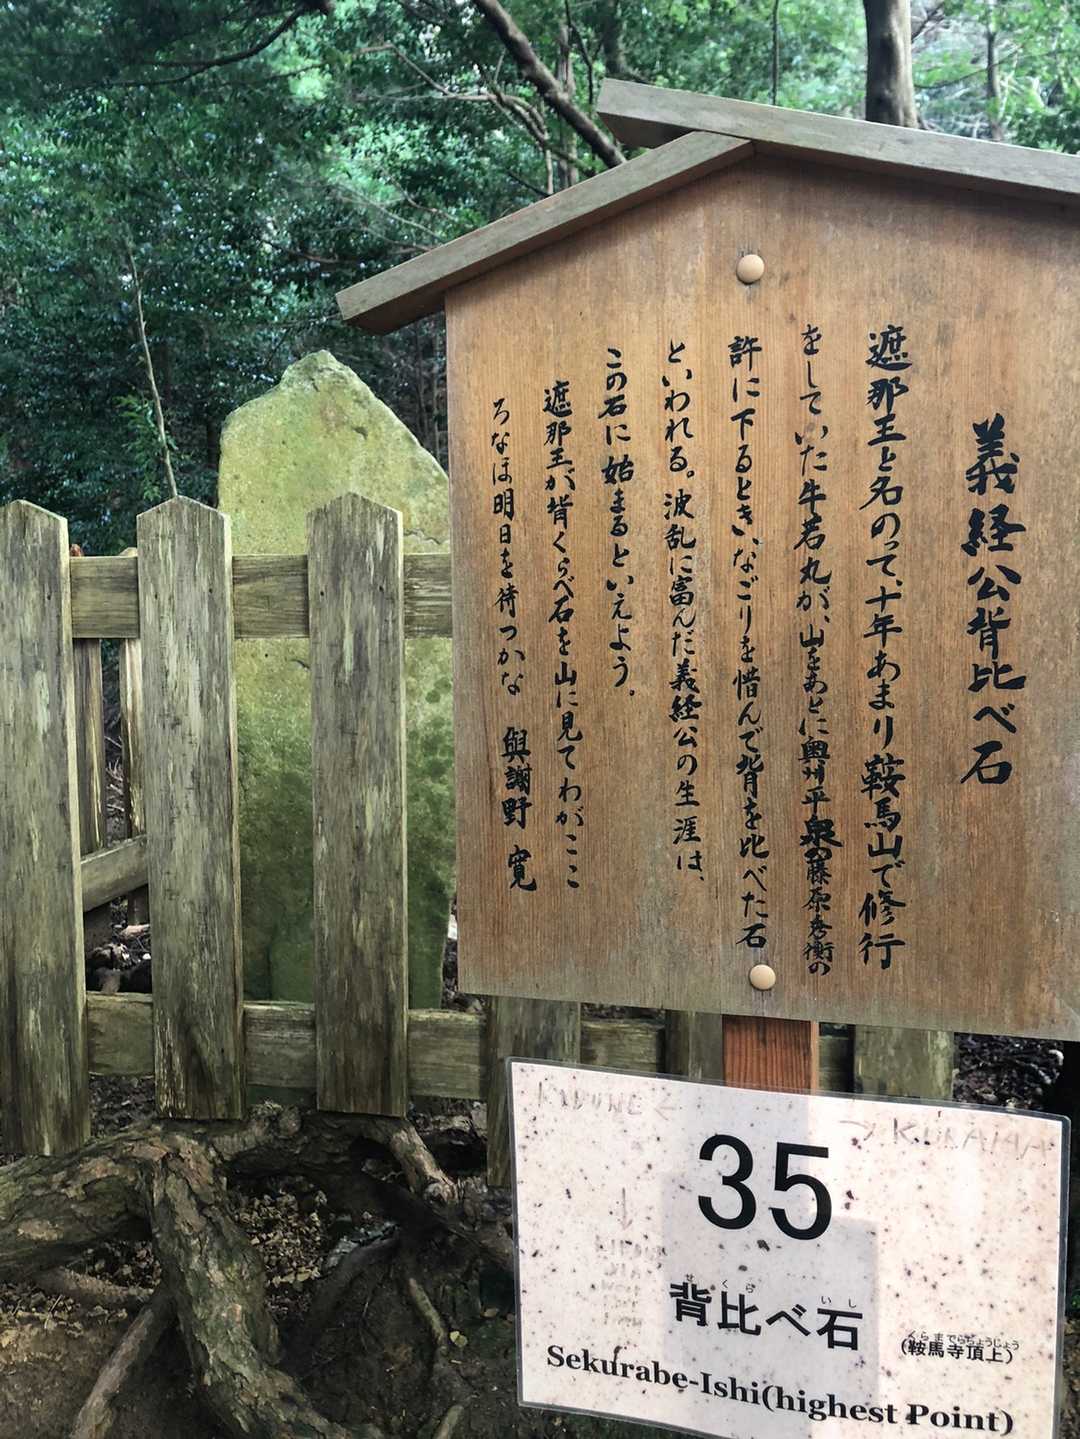 義経公背比べ石
遮那王と名のって、十年あまり鞍馬山で修行
をしていた牛若丸が、山をあとに奥州平泉の藤原秀衡の
許に下るとき、なごりを惜んで背を比べた石
といわれる。波乱に富んだ義経公の生涯は、
この石に始まるといえよう。
遮那王が背くらべ石を山に見てわがこゝ
ろなほ明日を待つかな 與謝野 寛
KIBUNE ←
→ KURAMA
35
せくらいし
背比べ石
くらまでらちょうじょう
(鞍馬寺頂上)
Sekurabe-Ishi(highest Point)